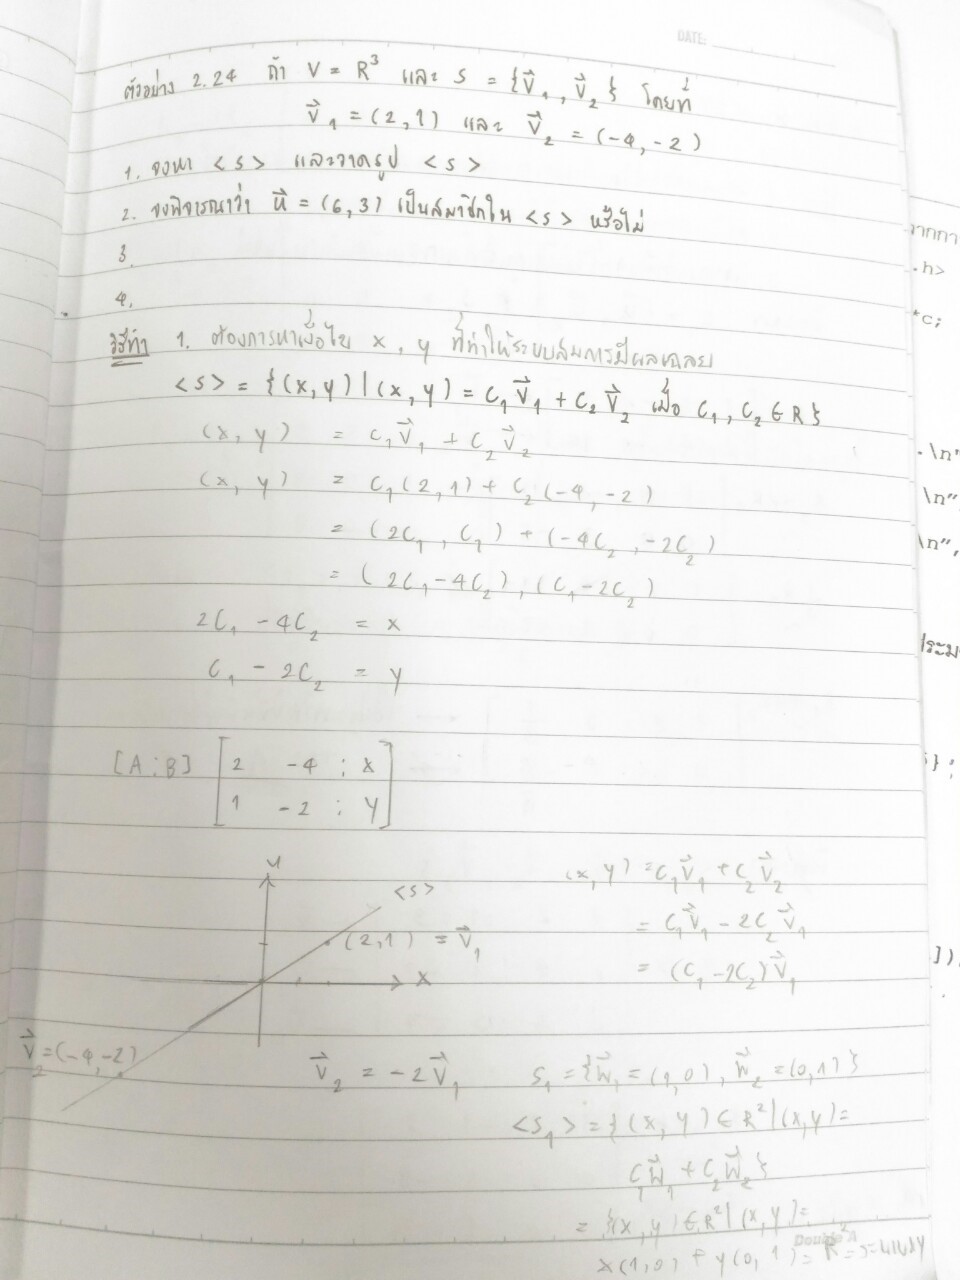 DATE:
ตัวอย่าง 2.24 ถ้า V = R³ และ S = {V⃗₁, V⃗₂} โดยที่
V⃗₁ = (2,1) และ V⃗₂ = (-4,-2)
1. จงหา <S> และวาดรูป <S>
2. จงพิจารณาว่า u⃗ = (6,3) เป็นสมาชิกใน <S> หรือไม่
3.
4.
วิธีทำ 1. ต้องการหาเงื่อนไข x, y ที่ทำให้ระบบสมการมีผลเฉลย
<S> = {(x,y)|(x,y) = C₁V⃗₁ + C₂V⃗₂ เมื่อ C₁, C₂ ∈ R}
(x, y) = C₁V⃗₁ + C₂V⃗₂
(x, y) = C₁(2,1) + C₂(-4,-2)
= (2C₁, C₁) + (-4C₂, -2C₂)
= (2C₁-4C₂), (C₁-2C₂)
2C₁ - 4C₂ = x
C₁ - 2C₂ = y
[A:B] [2 -4 ; x
1 -2 ; y]
y
<S>
(2,1) = V⃗₁
x
V⃗₂=(-4,-2)
V⃗₂ = -2V⃗₁
(x,y) = C₁V⃗₁ + C₂V⃗₂
= C₁V⃗₁ - 2C₂V⃗₁
= (C₁-2C₂)V⃗₁
S₁ = {W⃗₁=(1,0), W⃗₂=(0,1)}
<S₁> = {(x,y) ∈ R²|(x,y)=
C₁W⃗₁ + C₂W⃗₂}
= {(x,y) ∈ R²|(x,y)=
x(1,0) + y(0,1) = R²
Double A
.h>
*c;
\n"
\n",
\n",
};
]),